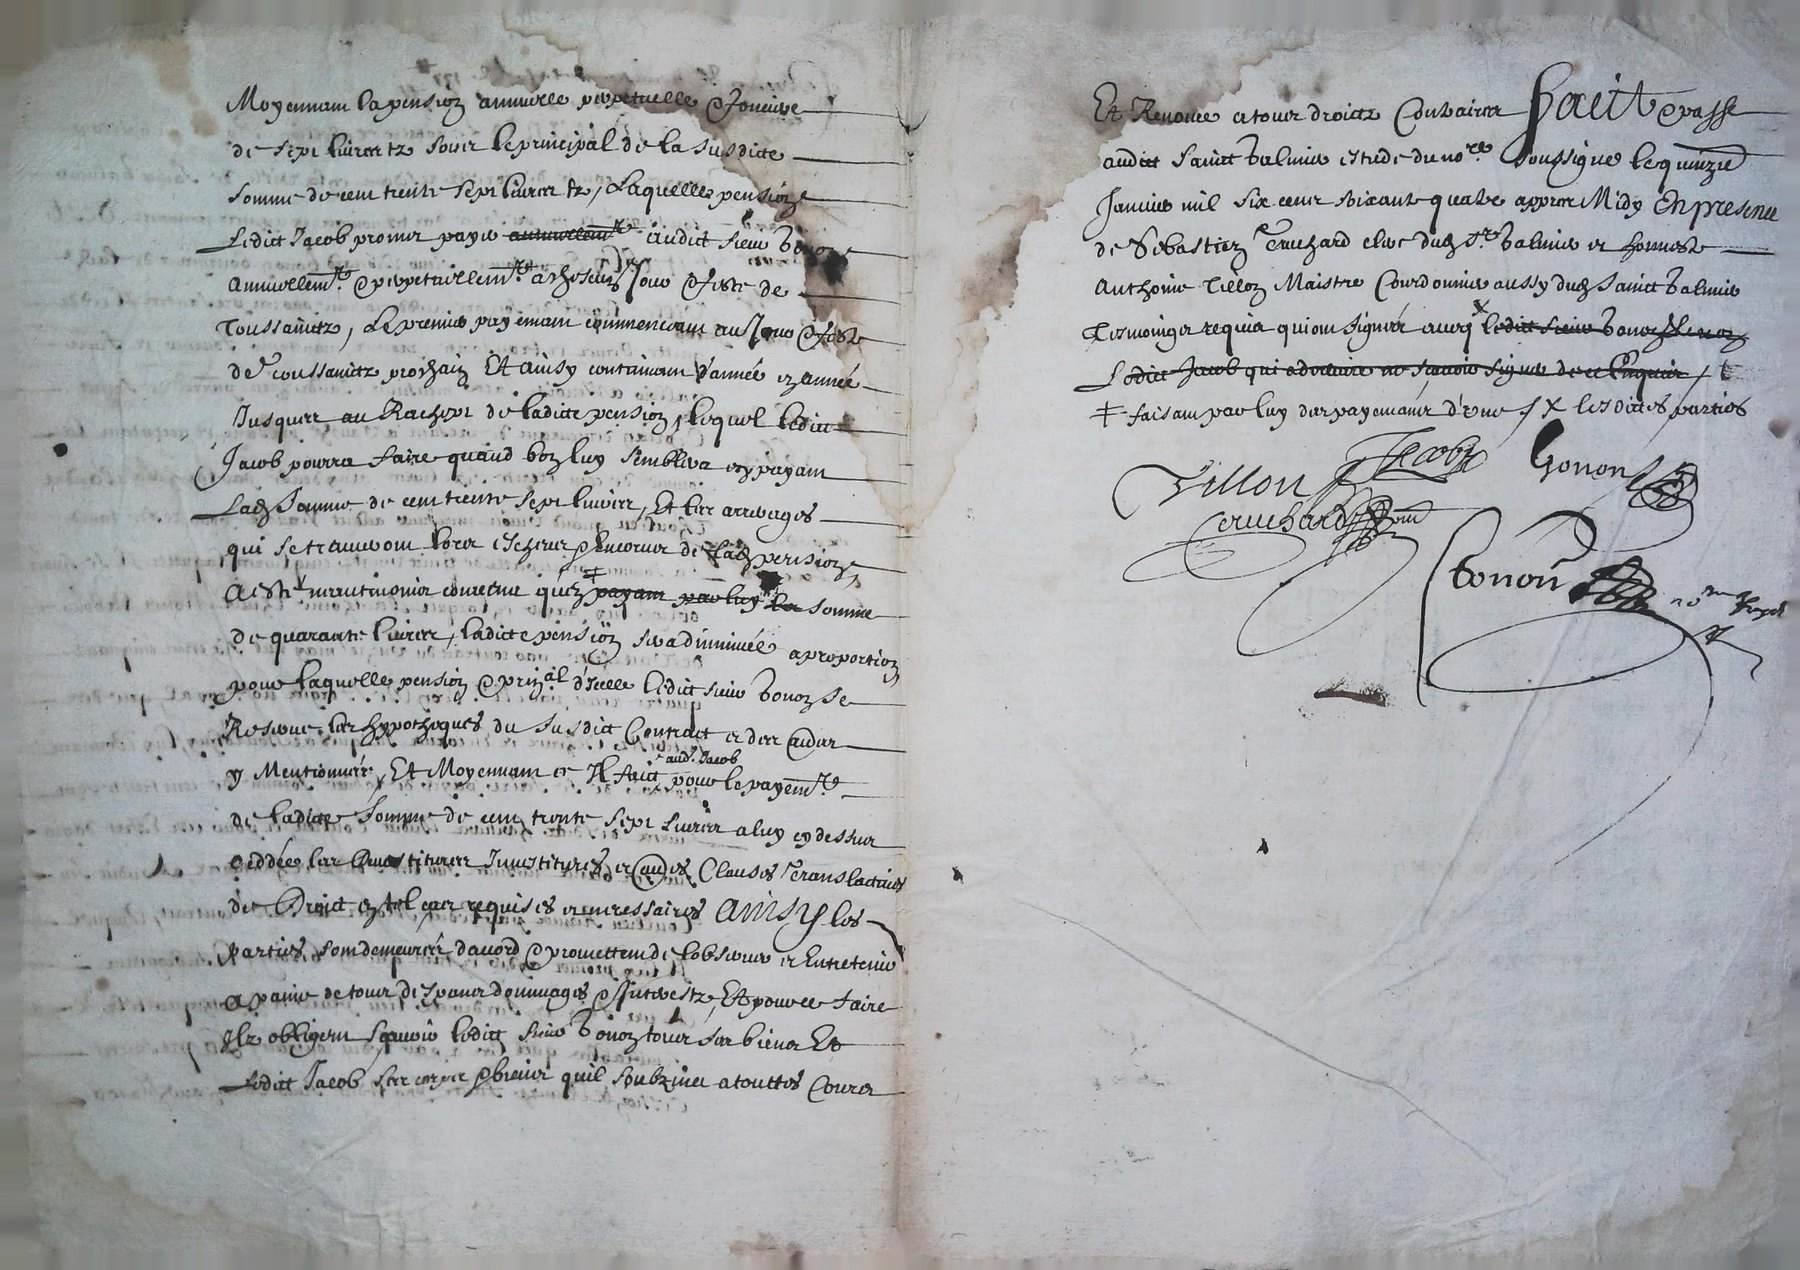 Moyennant la pension annuelle perpetuelle & fonciere
de sept livres tz pour le principal de la susdicte
somme de cent trente sept livres tz, Laquelle pension
Ledict Jacob promet payer annuellemt audict sieur Bonon
annuellemt & perpetuellemt a chescun jour & feste de
Toussainctz, Le premier payemant commencant au jour & feste
de Toussainctz prochain Et ainsy continuant d'année en année
Jusques au Rachept de ladicte pension, lequel ledict
Jacob pourra faire quand bon luy semblera en payant
Lad somme de cent trente sept livres, Et les arrerages
qui se trouveront lors escheus & encourus de lad pension
A esté convenu qu'en ‡ payant par luy la somme
de quarante livres, ladicte pension sera diminuée a proportion
pour laquelle pension & prinal d'icelle ledict sieur Bonon se
Reserve les hypotheques du susdict Contract et des
y Mentionnés, Et Moyennant ce Il faict audt Jacob pour le payemt
de ladicte somme de cent trente sept livres a luy cy dessus
ceddée les Investitures et Clauses Translatives
de Droict en tel cas requises et necessaires Ainsy les
parties sont demeurées dacord & promettent de lobserver et Entretenir
a paine de tous despans dommages & interestz, Et pour ce faire
Ilz obligent scavoir ledict sieur Bonon tous ses biens Et
Ledict Jacob ses corps & biens quil soubzmet a touttes Cours
Et Renonce a tous droictz Contraires Faict & passé
audict Sainct Balmier estude du nore soussigné le quinzie
Janvier mil six cens soixante quatre appres Midy En presence
de Sebastien Cruchard clerc dud St Balmier et honneste
Anthoine Tillon Maistre Courdonnier aussy dud Sainct Balmier
Tesmoings requis qui ont signés avecq x ledict sieur Bonon
Ledict Jacob qui a declaré ne scavoir signer de ce Enquis
‡ faisant par luy des payemans d'une / x lesdictes parties
Tillon
Jacob
Bonon
Cruchard
Bonon
nore Royal